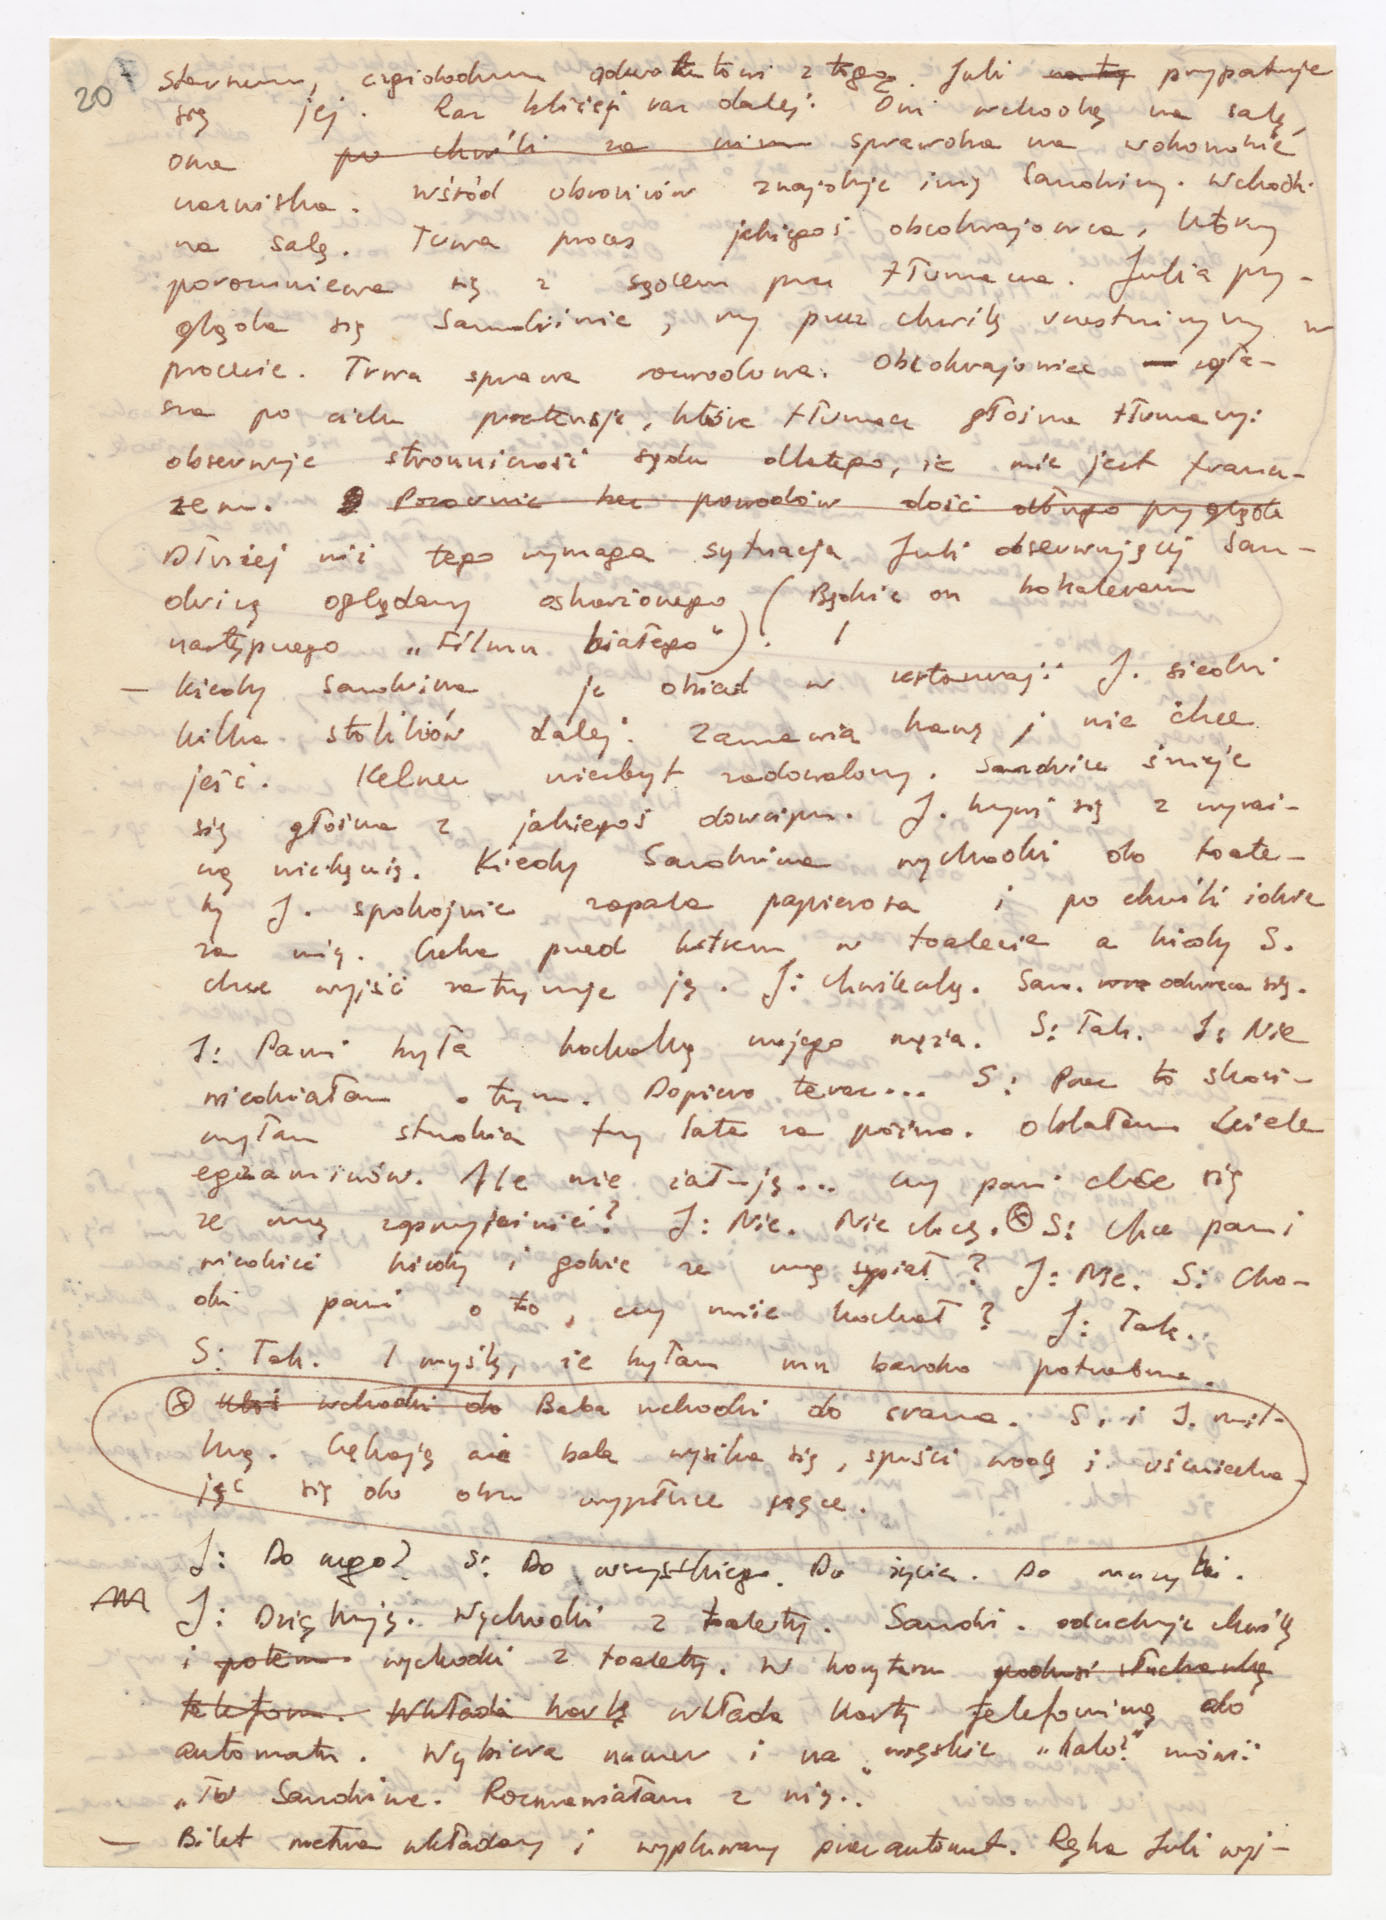 20 starszemu, czcigodnemu adwokatowi z togą. Juli na tę przypatruje
się jej. Raz bliżej raz dalej. Oni wchodzą na salę,
ona po chwili za nimi sprawdza na wokandzie
nazwiska. Wśród obrońców znajduje imię Sandriny. Wchodzi
na salę. Trwa proces jakiegoś obcokrajowca, który
porozumiewa się z sądem przez tłumacza. Julia przy-
gląda się Sandrinie, my przez chwilę uczestniczymy w
procesie. Trwa sprawa rozwodowa. Obcokrajowiec zgła-
sza po cichu pretensje, które tłumacz głośno tłumaczy:
obserwuje stronniczość sądu dlatego, że nie jest francu-
zem. Pozornie bez powodów dość długo przygląda
Dłużej niż tego wymaga sytuacja Juli obserwującej San-
drinę oglądamy oskarżonego (Będzie on bohaterem
następnego „Filmu białego").
— Kiedy Sandrina je obiad w restauracji J. siedzi
kilka stolików dalej. Zamawia kawę, nie chce
jeść. Kelner niezbyt zadowolony. Sandrine śmieje
się głośno z jakiegoś dowcipu. J. krzywi się z wyraź-
ną niechęcią. Kiedy Sandrina wychodzi do toale-
ty J. spokojnie zapala papierosa i po chwili idzie
za nią. Czeka przed lustrem w toalecie a kiedy S.
chce wyjść zatrzymuje ją. J: Chwileczkę. San. odwraca się.
J: Pani była kochanką mojego męża. S: Tak. J: Nie
wiedziałam o tym. Dopiero teraz... S: Przez to skoń-
czyłam studia trzy lata za późno. Oblałam wiele
egzaminów. Ale nie żałuję... czy pani chce się
ze mną zaprzyjaźnić? J: Nie. Nie chcę. ⊗ S: Chce pani
wiedzieć kiedy i gdzie ze mną sypiał? J: Nie. S: Cho-
dzi pani o to, czy mnie kochał? J: Tak.
S: Tak. I myślę, że byłam mu bardzo potrzebna.
⊗ Ktoś wchodzi do Baba wchodzi do srania. S. i J. mil-
kną. Czekają aż baba wysika się, spuści wodę i uśmiecha-
jąc się do obu wypłucze ręce.
J: Do czego? S: Do wszystkiego. Do życia. Do muzyki.
J: Dziękuję. Wychodzi z toalety. Sandri. odczekuje chwilę
i potem wychodzi z toalety. W korytarzu podnosi słuchawkę
telefonu. Wkłada kartę wkłada kartę telefoniczną do
automatu. Wybiera numer i na męskie „halo?" mówi:
„Tu Sandrine. Rozmawiałam z nią..
— Bilet metra wkładany i wypluwany przez automat. Ręka Juli wyj-